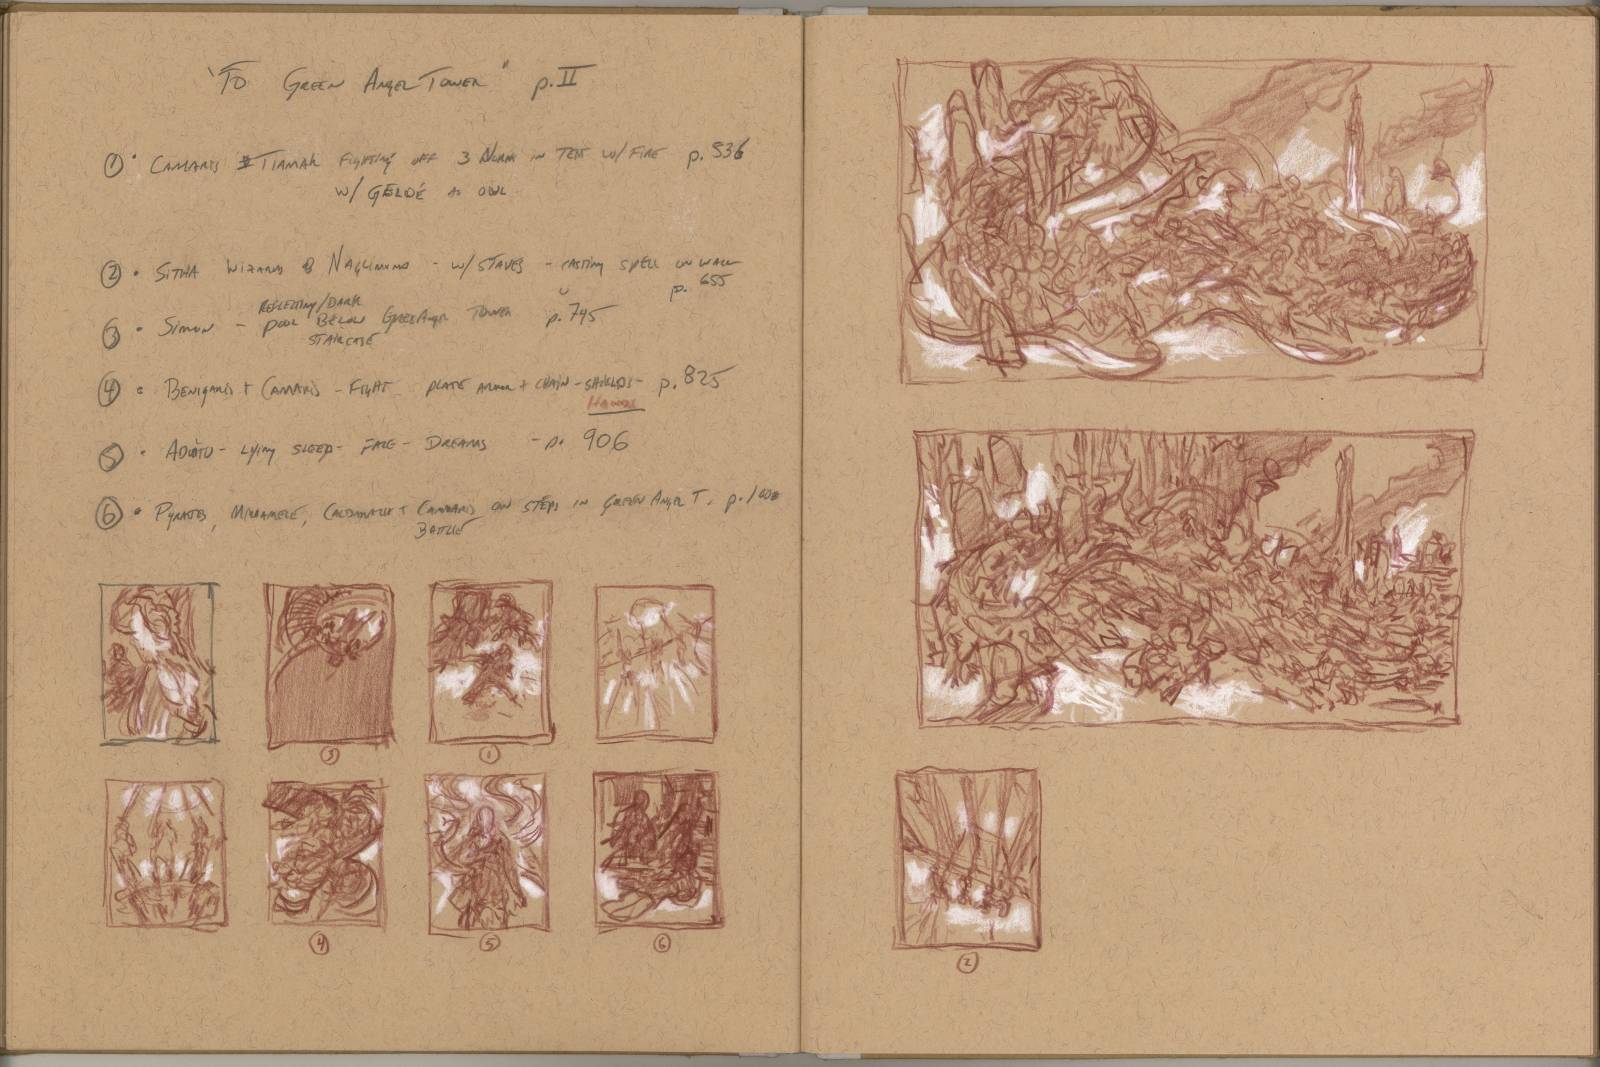 "To Green Angel Tower" p. II
① • Camaris Tiamak fighting off 3 Norn in tent w/ fire p. 536
w/ Geloë as owl
② • Sitha wizards @ Naglimund - w/ staves - casting spell on wall
p. 655
reflecting/dark
③ • Simon - pool below Green Angel Tower p. 745
staircase
④ • Benigaris + Camaris - fight - plate armor + chain - shields - p. 825
Hands
⑤ • Aditu - lying sleep - face - dreams - p. 906
⑥ • Pyrates, Miriamele, + Camaris on steps in Green Angel T. p.
Battle
③
①
④
⑤
⑥
②